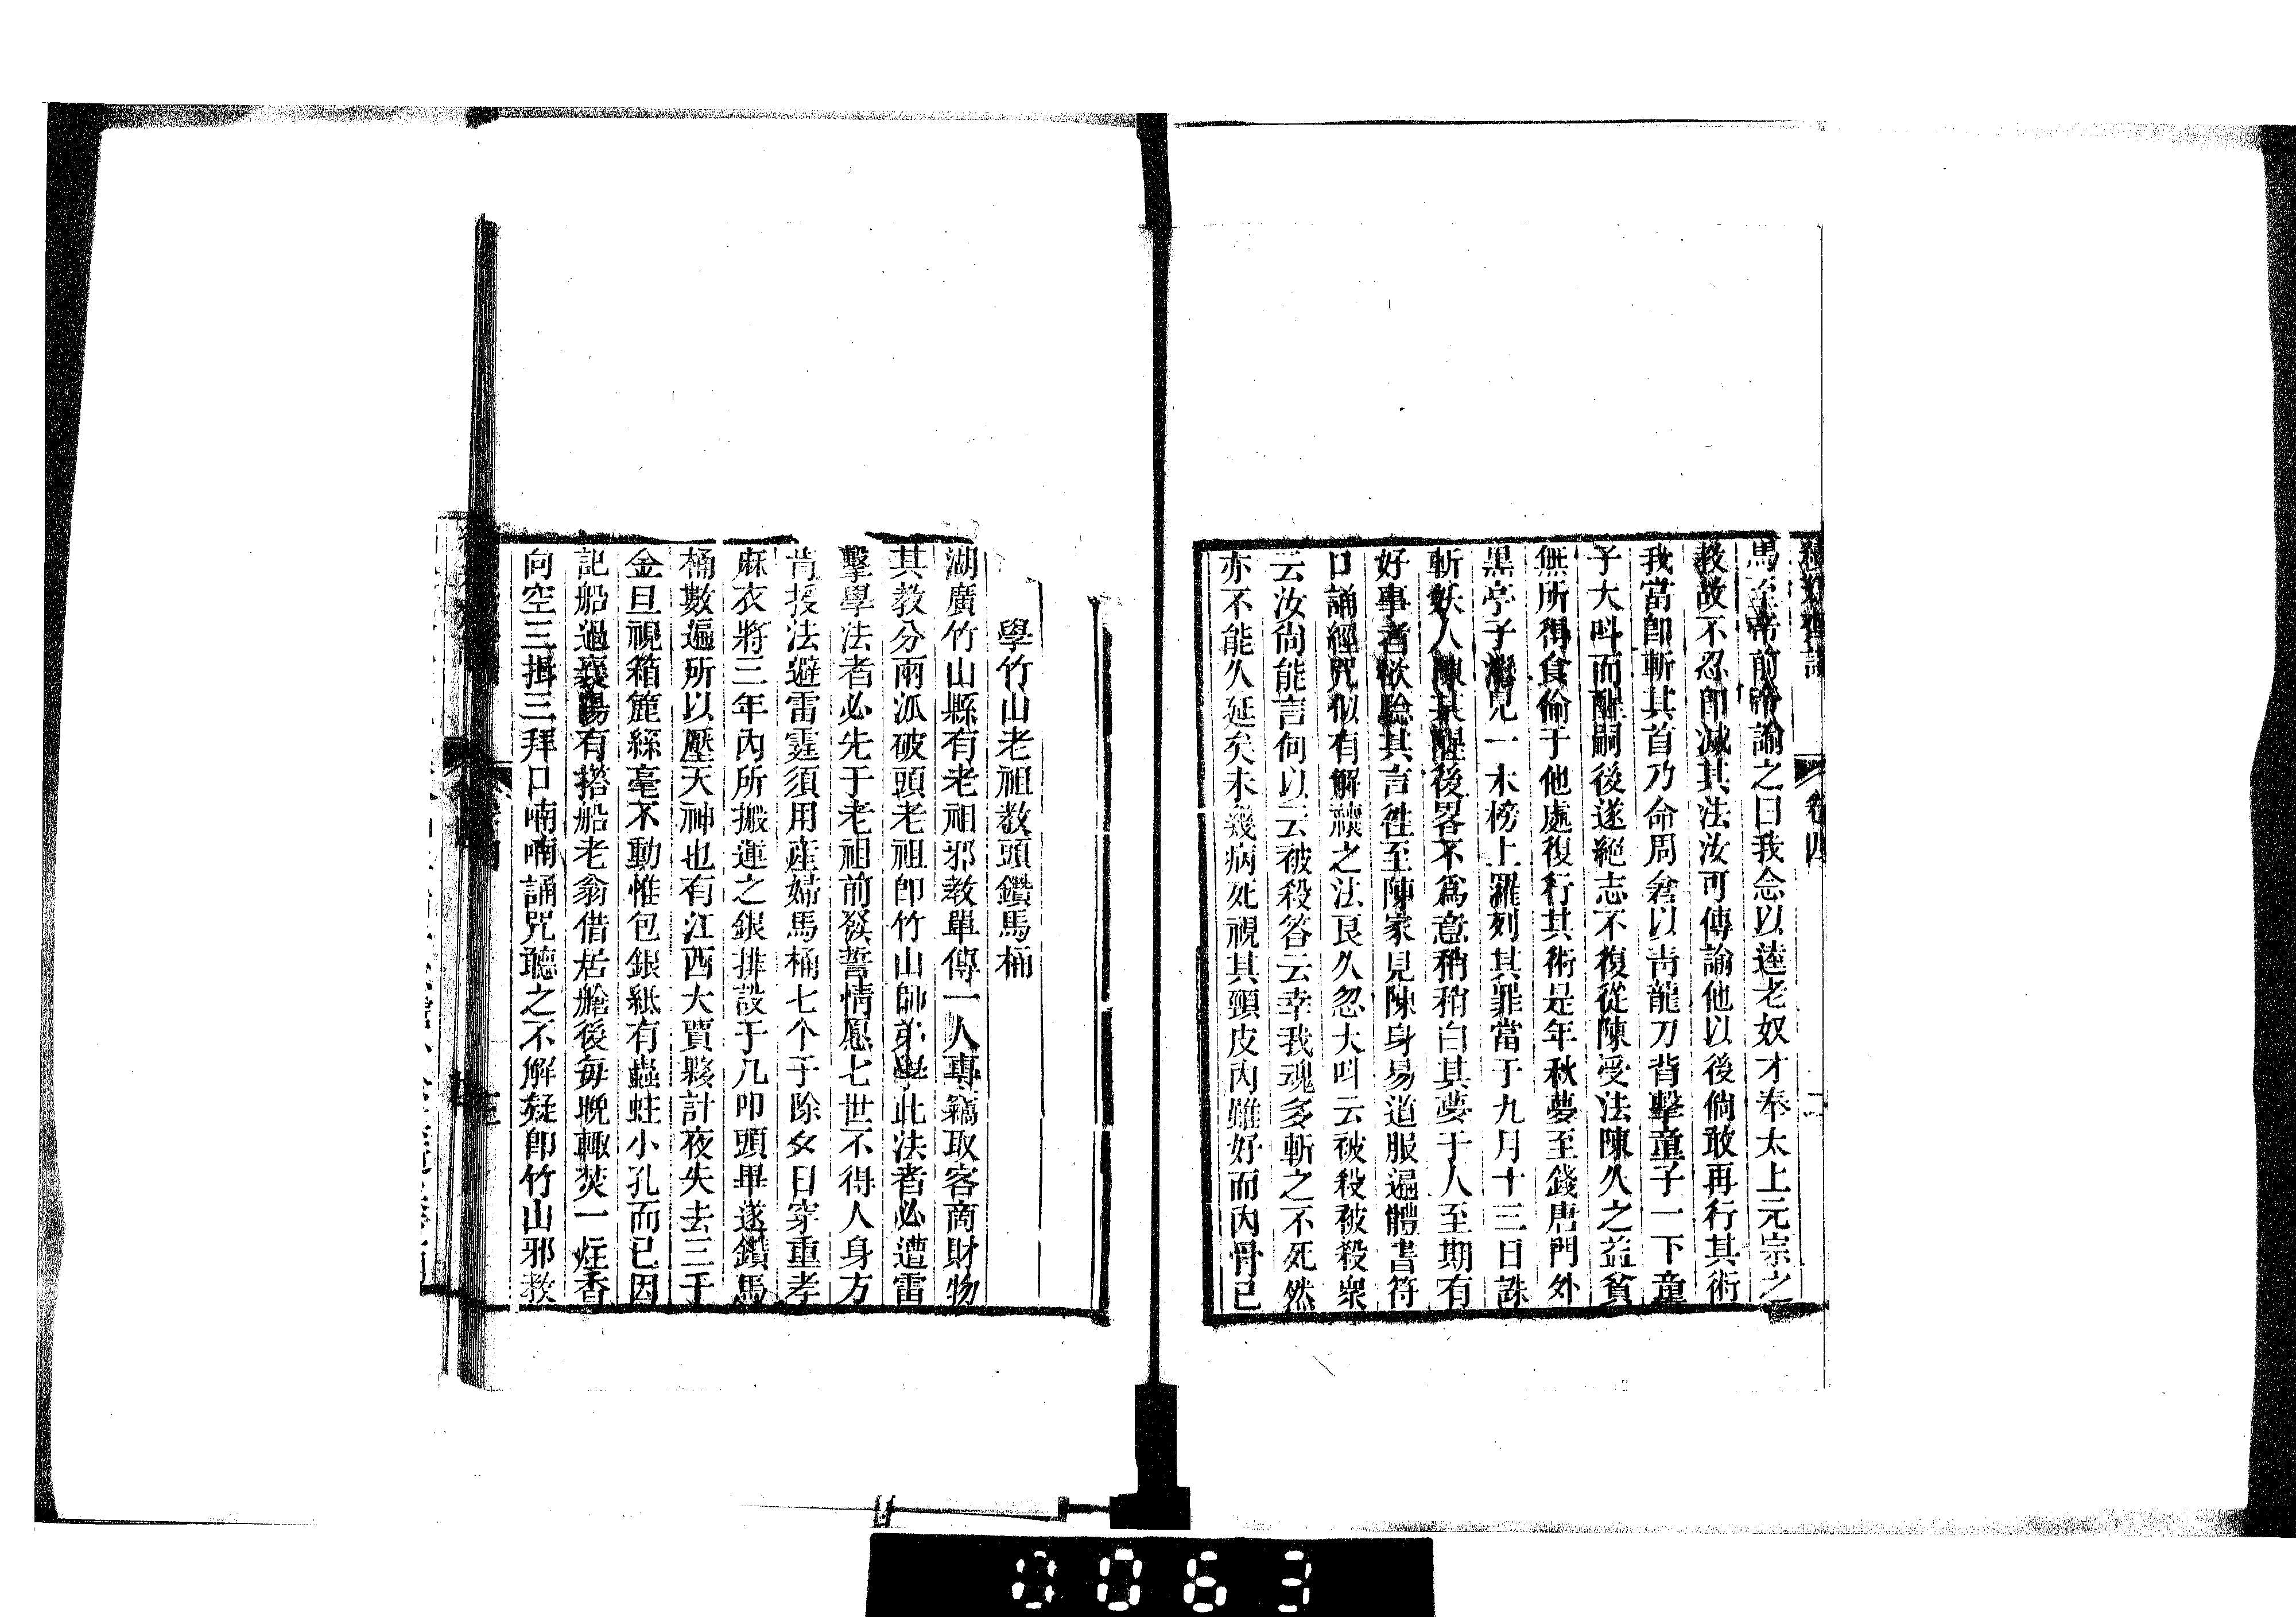 卷四
二
馬至帝前帝諭之曰我念以逵老奴才奉太上元宗之
教故不忍即滅其法汝可傳諭他以後倘敢再行其術
我當卽斬其首乃命周倉以靑龍刀背擊童子一下童
子大叫而醒嗣後遂絕志不復從陳受法陳久之益貧
無所得食偷于他處復行其術是年秋夢至錢唐門外
黑亭子灣見一木榜上羅列其罪當于九月十三日誅
斬妖人陳某醒後畧不爲意稍稍白其夢于人至期有
好事者欲驗其言徃至陳家見陳身易道服遍體書符
口誦經咒似有解禳之法良久忽大叫云被殺被殺衆
云汝尙能言何以云被殺答云幸我魂多斬之不死然
亦不能久延矣未幾病死視其頸皮肉雖好而內骨已
學竹山老祖教頭鑽馬桶
湖廣竹山縣有老祖邪教單傳一人專竊取客商財物
其教分兩派破頭老祖卽竹山師弟學此法者必遭雷
擊學法者必先于老祖前發誓情愿七世不得人身方
肯授法避雷霆須用產婦馬桶七个于除夕日穿重孝
麻衣將三年內所搬運之銀排設于几叩頭畢遂鑽馬
桶數遍所以壓天神也有江西大賈夥計夜失去三千
金旦視箱簏絲毫不動惟包銀紙有蟲蛀小孔而已因
記船過襄陽有搭船老翁借居艙後每晚輒焚一炷香
向空三揖三拜口喃喃誦咒聽之不解疑卽竹山邪教
0063